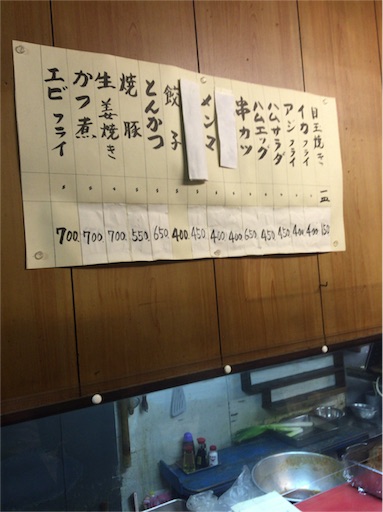 目玉焼き 一皿 150
イカフライ 〃 400
アジフライ 〃 400
ハムサラダ 〃 450
ハムエッグ 〃 450
串カツ 〃 650
〃 400
メンマ 〃 400
〃 450
餃子 〃 400
とんかつ 〃 650
焼豚 〃 550
生姜焼き 〃 700
かつ煮 〃 700
エビフライ 〃 700